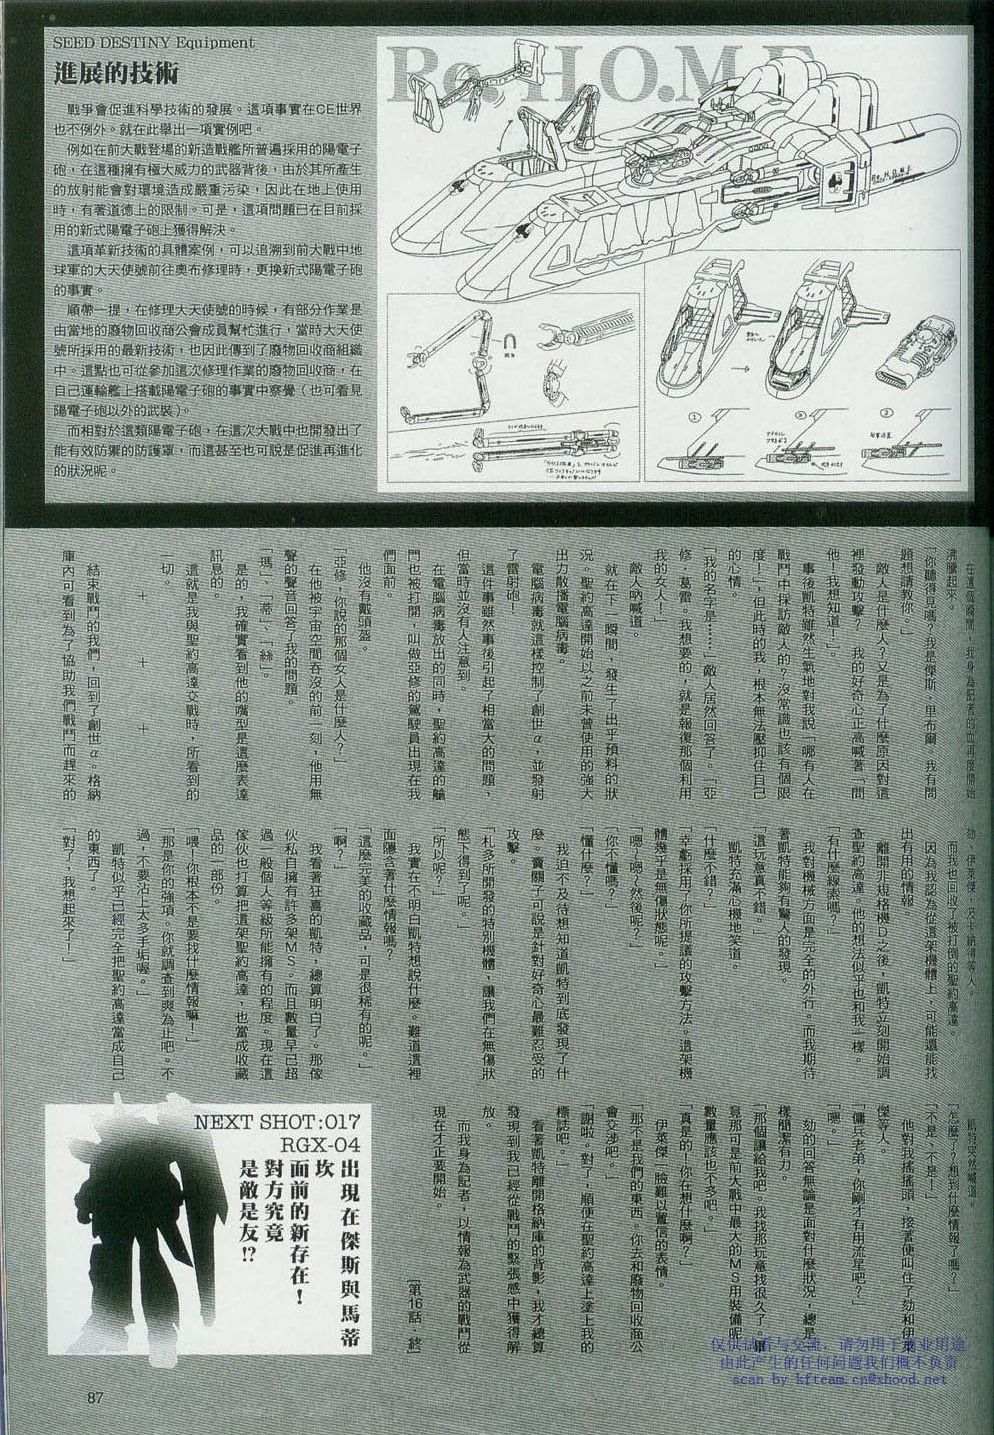 SEED DESTINY Equipment
進展的技術
戰爭會促進科學技術的發展。這項事實在CE世界
也不例外。就在此舉出一項實例吧。
例如在前大戰登場的新造戰艦所普遍採用的陽電子
砲，在這種擁有極大威力的武器背後，由於其所產生
的放射能會對環境造成嚴重污染，因此在地上使用
時，有著道德上的限制。可是，這項問題已在目前採
用的新式陽電子砲上獲得解決。
這項革新技術的具體案例，可以追溯到前大戰中地
球軍的大天使號前往奧布修理時，更換新式陽電子砲
的事實。
順帶一提，在修理大天使號的時候，有部分作業是
由當地的廢物回收商公會成員幫忙進行，當時大天使
號所採用的最新技術，也因此傳到了廢物回收商組織
中。這點也可從參加這次修理作業的廢物回收商，在
自己運輸艦上搭載陽電子砲的事實中察覺（也可看見
陽電子砲以外的武裝）。
而相對於這類陽電子砲，在這次大戰中也開發出了
能有效防禦的防護罩，而這甚至也可說是促進再進化
的狀況呢。
Re.H.O.M.E
①
②
③
在這個瞬間，我身為記者的血再度開始
沸騰起來。
「你聽得見嗎？我是傑斯·里布爾，我有問
題想請教你。」
敵人是什麼人？又是為了什麼原因對這
裡發動攻擊？　我的好奇心正高喊著「問
他！我想知道！」。
事後凱特雖然生氣地對我說「哪有人在
戰鬥中採訪敵人的？沒常識也該有個限
度！」，但此時的我，根本無法壓抑住自己
的心情。
「我的名字是……」敵人居然回答了。「亞
修·葛雷。我想要的，就是報復那個利用
我的女人！」
敵人吶喊道。
就在下一瞬間，發生了出乎預料的狀
況。聖約高達開始以之前未曾使用的強大
出力散播電腦病毒。
電腦病毒就這樣控制了創世α，並發射
了雷射砲！
這件事雖然事後引起了相當大的問題，
但當時並沒有人注意到。
在電腦病毒放出的同時，聖約高達的艙
門也被打開，叫做亞修的駕駛員出現在我
們面前。
他沒有戴頭盔。
「亞修，你說的那個女人是什麼人？」
在他被宇宙空間吞沒的前一刻，他用無
聲的聲音回答了我的問題。
「瑪」、「蒂」、「絲」。
是的，我確實看到他的嘴型是這麼表達
訊息的。
這就是我與聖約高達交戰時，所看到的
一切。
＋　＋　＋　＋
結束戰鬥的我們，回到了創世α。格納
庫內可看到為了協助我們戰鬥而趕來的
劾、伊萊傑，及卡納得等人。
而我也回收了被打倒的聖約高達。
因為我認為從這架機體上，可能還能找
出有用的情報。
離開非規格機D之後，凱特立刻開始調
查聖約高達。他的想法似乎也和我一樣。
「有什麼線索嗎？」
我對機械方面是完全的外行。而我期待
著凱特能夠有驚人的發現。
「這玩意真不錯。」
凱特充滿心機地笑道。
「什麼不錯？」
「幸虧採用了你所提議的攻擊方法。這架機
體幾乎是無傷狀態呢。」
「嗯？嗯～然後呢？」
「你不懂嗎？」
「懂什麼？」
我迫不及待想知道凱特到底發現了什
麼。賣關子可說是針對好奇心最難忍受的
攻擊。
「札多所開發的特別機體，讓我們在無傷狀
態下得到了呢」
「所以呢？」
我實在不明白凱特想說什麼。難道這裡
面隱含著什麼情報嗎？
「這麼完美的收藏品，可是很稀有的呢。」
「啊？」
我看著狂喜的凱特，總算明白了。那傢
伙私自擁有許多架MS。而且數量早已超
過一般個人等級所能擁有的程度。現在這
傢伙也打算把這架聖約高達，也當成收藏
品的一部份。
「喂！你根本不是要找什麼情報嘛！」
「那是你的強項。你就調查到爽為止吧。不
過，不要沾上太多手垢喔。」
凱特似乎已經完全把聖約高達當成自己
的東西了。
「對了，我想起來了！」
凱特突然喊道。
「怎麼？？想到什麼情報了嗎？」
「不是、不是！」
他對我搖搖頭，接著便叫住了劾和伊萊
傑等人。
「傭兵老弟，你剛才有用流星吧？」
「嗯。」
劾的回答無論是面對什麼狀況，總是一
樣簡潔有力。
「那個讓給我吧。我找那玩意找很久了。畢
竟那可是前大戰中最大的MS用裝備呢。
數量應該也不多吧。」
「真是的！你在想什麼啊？」
伊萊傑一臉難以置信的表情。
「那不是我們的東西。你去和廢物回收商公
會交涉吧。」
「謝啦。對了，順便在聖約高達上塗上我的
標誌吧。」
看著凱特離開格納庫的背影，我才總算
發現到我已經從戰鬥的緊張感中獲得解
放。
而我身為記者，以情報為武器的戰鬥從
現在才正要開始。
［第16話　終］
NEXT SHOT:017
RGX-04
出現在傑斯與馬蒂
坎
面前的新存在！
對方究竟
是敵是友!?
仅供试看与交流，请勿用于商业用途
由此产生的任何问题我们概不负责
scan by kfteam.cp@xhood.net
87